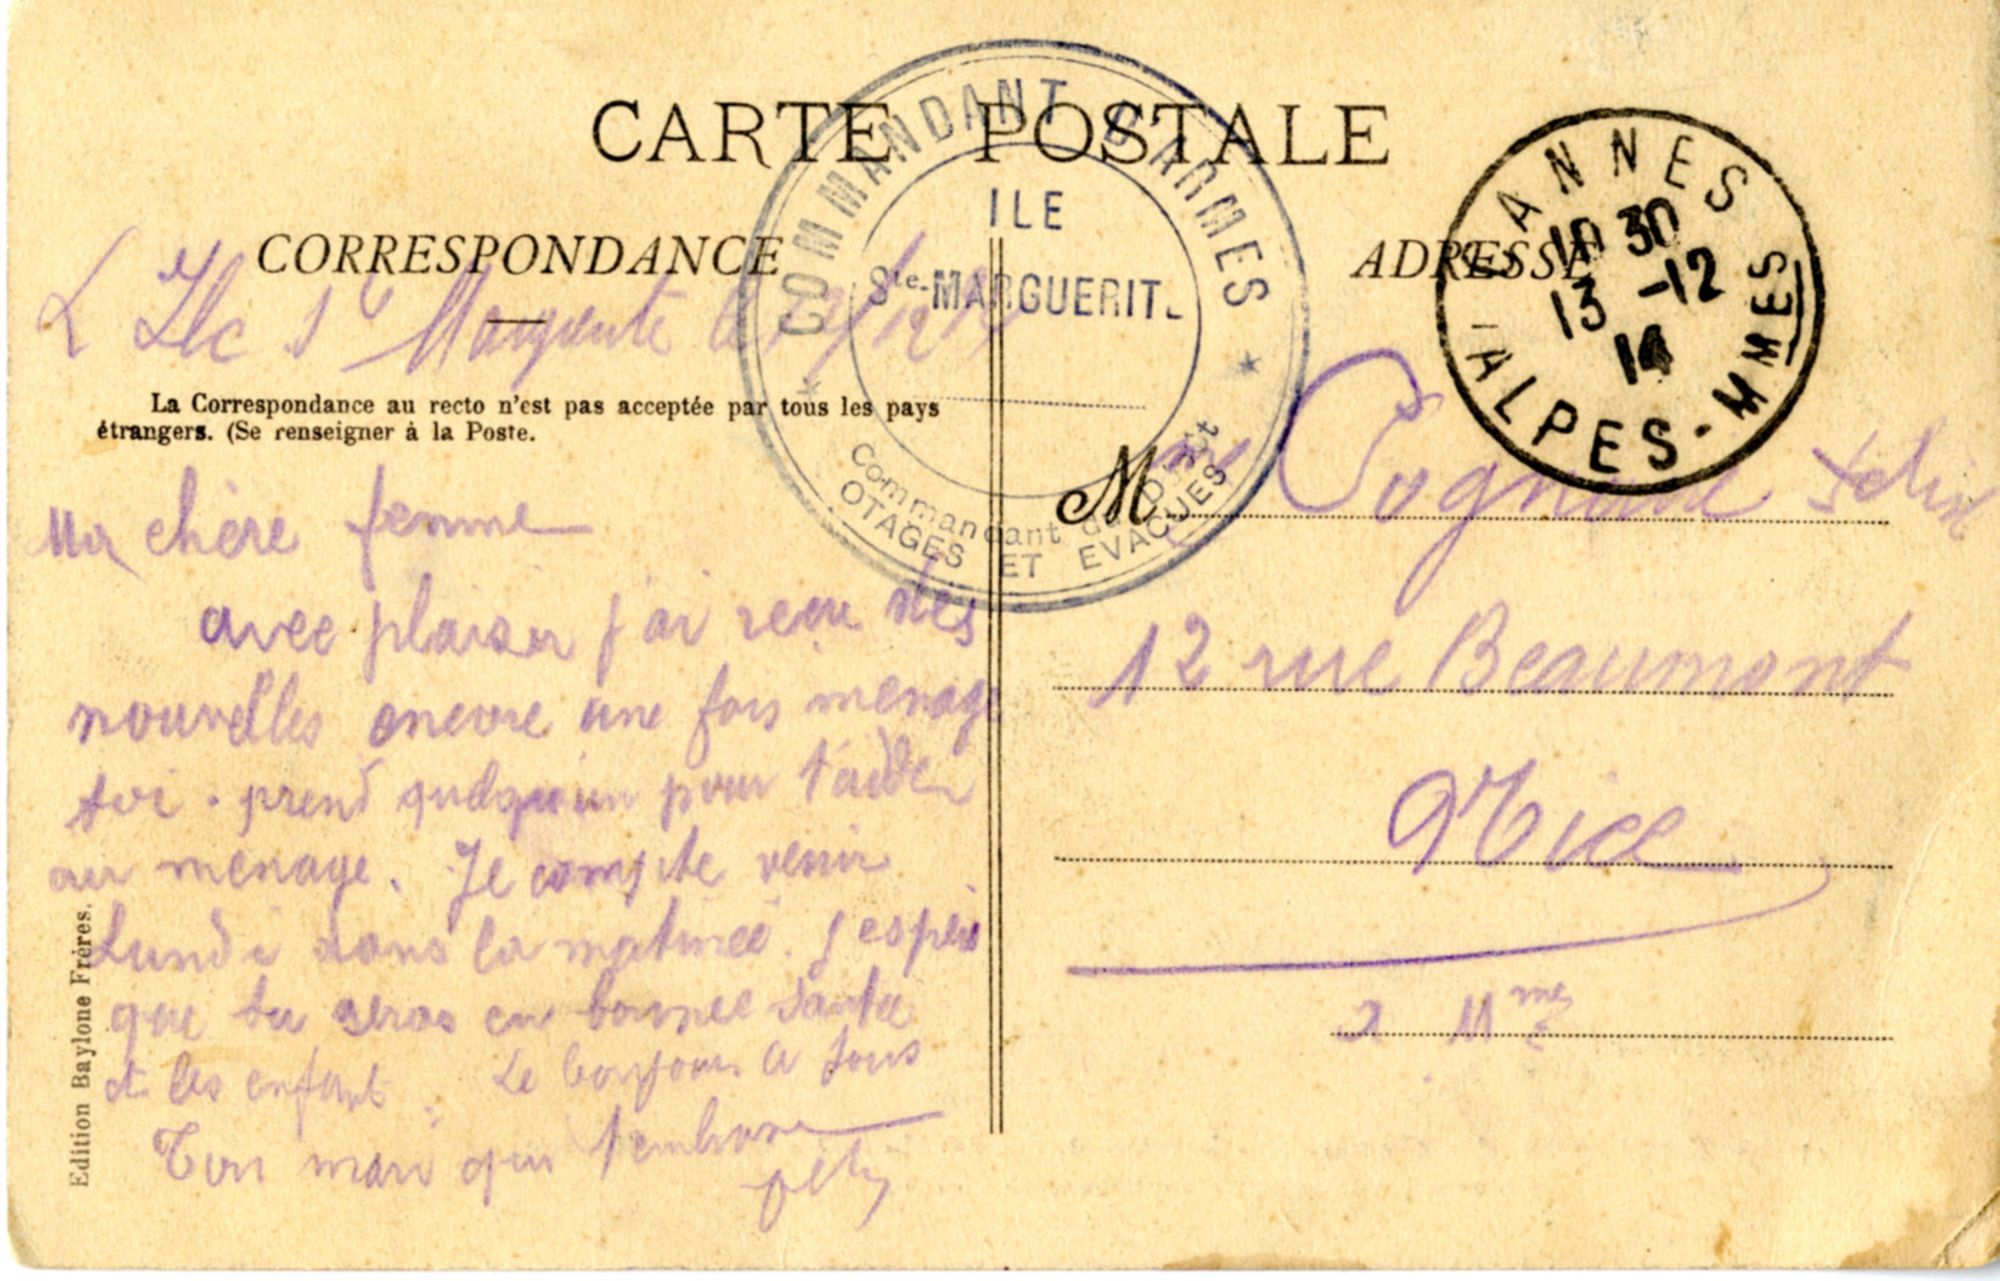 CARTE POSTALE
CORRESPONDANCE
ADRESSE
COMMANDANT D'ARMES
ILE
Ste-MARGUERITE
Commandant du Dépôt
OTAGES ET EVACUES
CANNES
10 30
13 -12
14
ALPES-MMES
L Ile Ste Marguerite le /12 14
La Correspondance au recto n'est pas acceptée par tous les pays
étrangers. (Se renseigner à la Poste.
Ma chère femme
avec plaisir j'ai reçu des
nouvelles encore une fois menage
toi . prend quelqu'un pour t'aider
au menage. Je compte venir
Lundi dans la matinée. J espère
que tu seras en bonnee santee
et les enfant. Le bonjour a tous
Ton mari qui t'embrasse
Félix
Edition Baylone Frères.
Mme Felix
12 rue Beaumont
Nice
a Mme